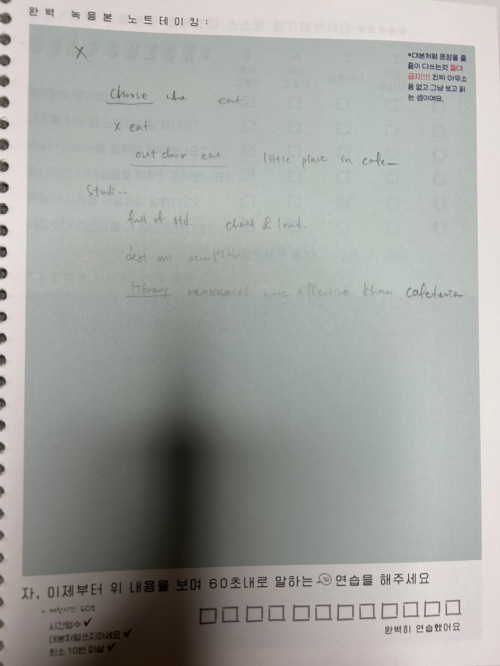 완벽 녹음본 노트테이킹:
*대본처럼 문장을 줄
줄이 다쓰는것 절대
금지!!!! 진짜 아무소
용 없고 그냥 보고 읽
는 셈이에요.
X
choose who eat
x eat
outdoor eat little place in cafe
Studi..
full of std. chat & loud.
library more effective than cafeteria
자, 이제부터 위 내용을 보며 60초내로 말하는 연습을 해주세요
60초
시간엄수 ✓
대본처럼쓰지마세요 ✓
최소 10번 이상 ✓
완벽히 연습했어요